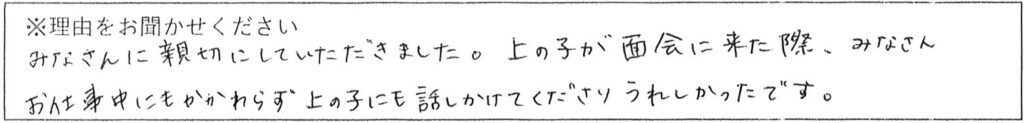 ※理由をお聞かせください
みなさんに親切にしていただきました。上の子が面会に来た際、みなさん
お仕事中にもかかわらず上の子にも話しかけてくださりうれしかったです。